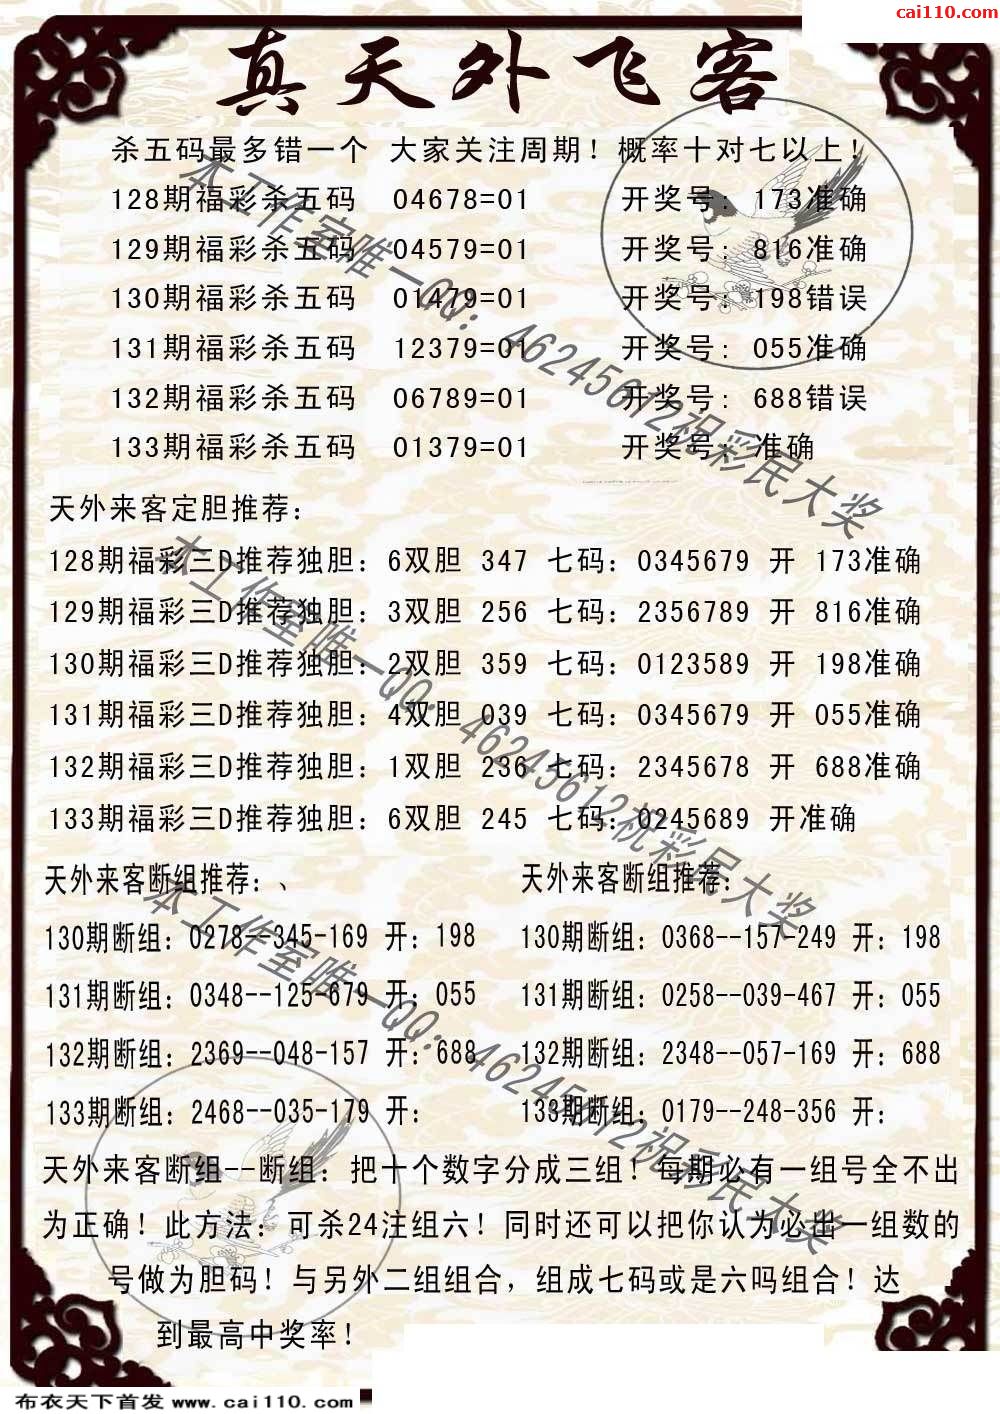 cai110.com
真天外飞客
杀五码最多错一个 大家关注周期！概率十对七以上！
128期福彩杀五码 04678=01 开奖号：173准确
129期福彩杀五码 04579=01 开奖号：816准确
130期福彩杀五码 01479=01 开奖号：198错误
131期福彩杀五码 12379=01 开奖号：055准确
132期福彩杀五码 06789=01 开奖号：688错误
133期福彩杀五码 01379=01 开奖号：准确
天外来客定胆推荐：
128期福彩三D推荐独胆：6双胆 347 七码：0345679 开 173准确
129期福彩三D推荐独胆：3双胆 256 七码：2356789 开 816准确
130期福彩三D推荐独胆：2双胆 359 七码：0123589 开 198准确
131期福彩三D推荐独胆：4双胆 039 七码：0345679 开 055准确
132期福彩三D推荐独胆：1双胆 236 七码：2345678 开 688准确
133期福彩三D推荐独胆：6双胆 245 七码：0245689 开准确
天外来客断组推荐：、 天外来客断组推荐：
130期断组：0278--345-169 开：198 130期断组：0368--157-249 开：198
131期断组：0348--125-679 开：055 131期断组：0258--039-467 开：055
132期断组：2369--048-157 开：688 132期断组：2348--057-169 开：688
133期断组：2468--035-179 开： 133期断组：0179--248-356 开：
天外来客断组--断组：把十个数字分成三组！每期必有一组号全不出
为正确！此方法：可杀24注组六！同时还可以把你认为必出一组数的
号做为胆码！与另外二组组合，组成七码或是六吗组合！达
到最高中奖率！
本工作室唯一QQ：46245612祝彩民大奖
本工作室唯一QQ：46245612祝彩民大奖
本工作室唯一QQ：46245612祝彩民大奖
布衣天下首发 www.cai110.com